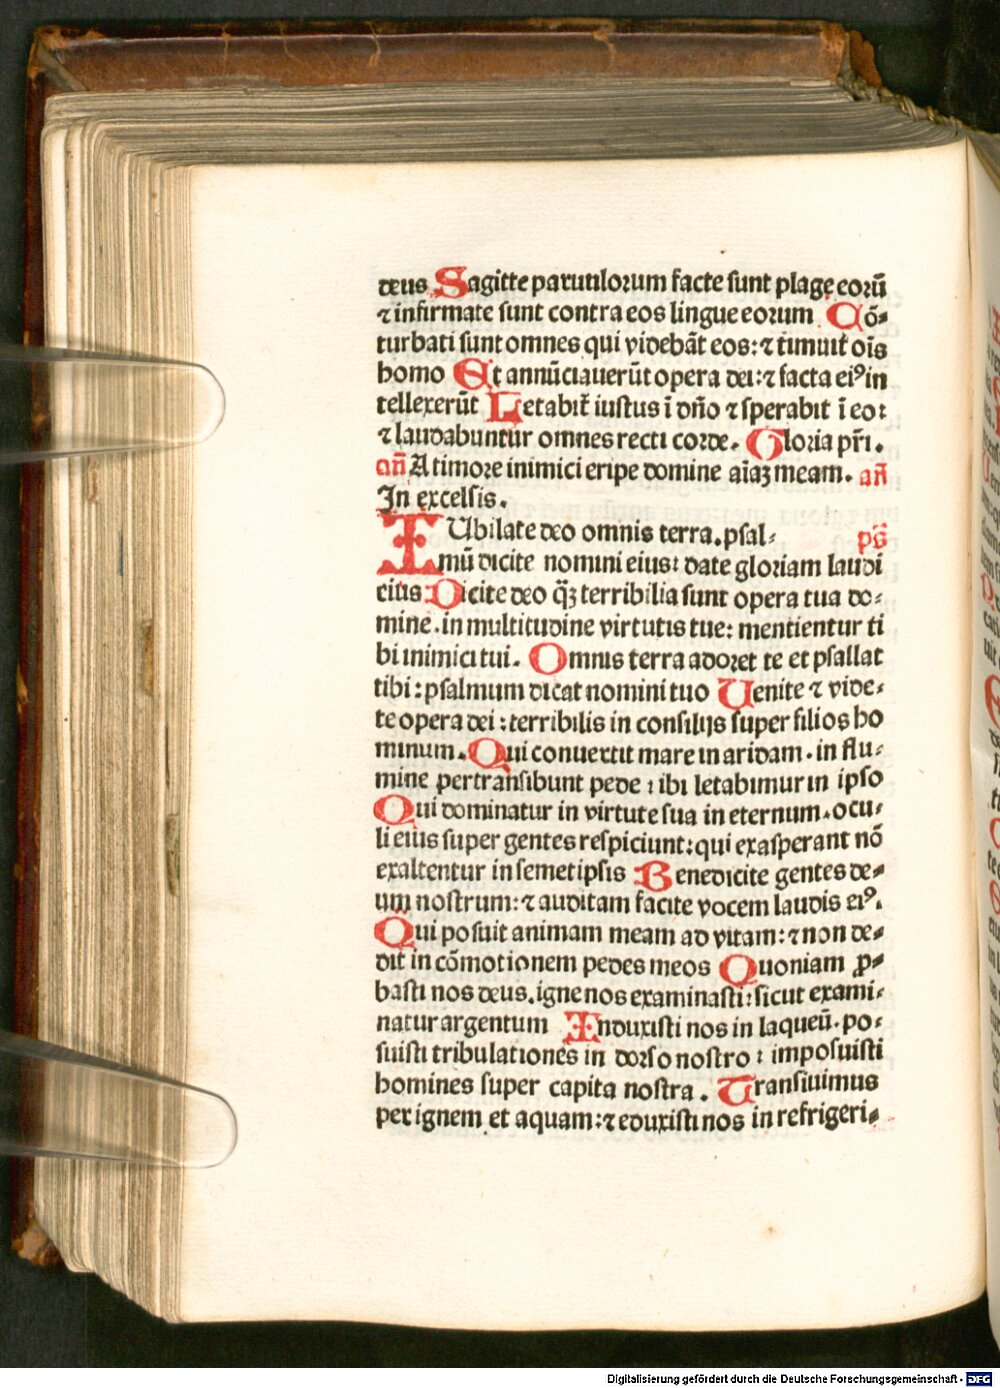 deus Sagitte paruulorum facte sunt plage eorū
⁊ infirmate sunt contra eos lingue eorum Cō⸗
turbati sunt omnes qui videbāt eos: ⁊ timuit̄ oīs
homo Et annūciauerūt opera dei: ⁊ facta eiꝰ in
tellexerūt Letabit̄ iustus ī dn̄o ⁊ sperabit ī eo:
⁊ laudabuntur omnes recti corde. Gloria pr̄i.
an̄ A timore inimici eripe domine aīaꝫ meam. an̄
In excelsis.
IUbilate deo omnis terra. psal⸗ ps̄
mū dicite nomini eius: date gloriam laudi
eius Dicite deo q̄ꝫ terribilia sunt opera tua do⸗
mine. in multitudine virtutis tue: mentientur ti
bi inimici tui. Omnis terra adoret te et psallat
tibi: psalmum dicat nomini tuo Uenite ⁊ vide⸗
te opera dei: terribilis in consilijs super filios ho
minum. Qui conuertit mare in aridam. in flu⸗
mine pertransibunt pede: ibi letabimur in ipso
Qui dominatur in virtute sua in eternum. ocu⸗
li eius super gentes respiciunt: qui exasperant nō
exaltentur in semetipsis Benedicite gentes de⸗
um nostrum: ⁊ auditam facite vocem laudis eiꝰ.
Qui posuit animam meam ad vitam: ⁊ non de⸗
dit in cōmotionem pedes meos Quoniam ꝓ⸗
basti nos deus. igne nos examinasti: sicut exami⸗
natur argentum Induxisti nos in laqueū. po⸗
suisti tribulationes in dorso nostro: imposuisti
homines super capita nostra. Transiuimus
per ignem et aquam: ⁊ eduxisti nos in refrigeri⸗
Digitalisierung gefördert durch die Deutsche Forschungsgemeinschaft - DFG